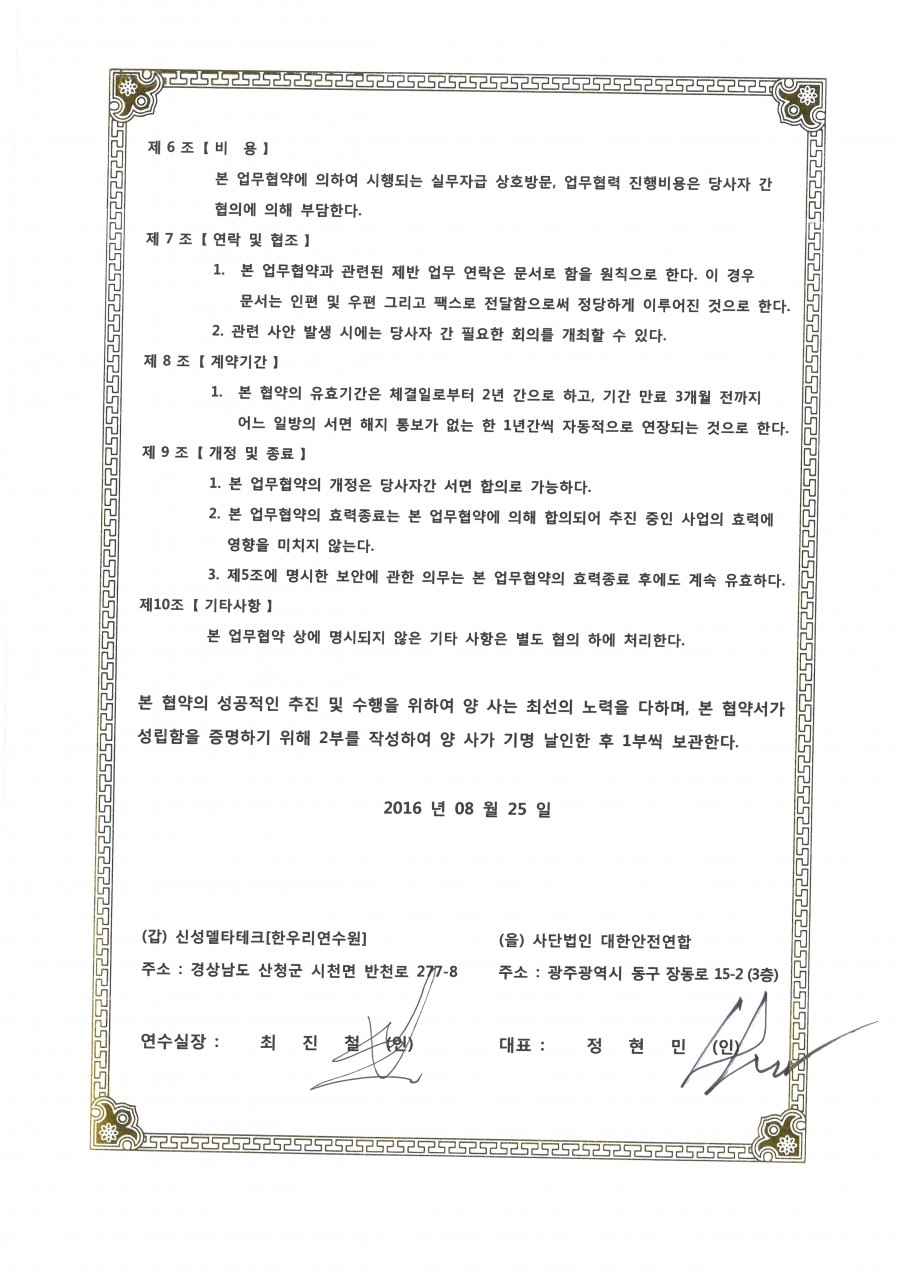 제 6 조 【 비 용 】
본 업무협약에 의하여 시행되는 실무자급 상호방문, 업무협력 진행비용은 당사자 간
협의에 의해 부담한다.
제 7 조 【 연락 및 협조 】
1. 본 업무협약과 관련된 제반 업무 연락은 문서로 함을 원칙으로 한다. 이 경우
문서는 인편 및 우편 그리고 팩스로 전달함으로써 정당하게 이루어진 것으로 한다.
2. 관련 사안 발생 시에는 당사자 간 필요한 회의를 개최할 수 있다.
제 8 조 【 계약기간 】
1. 본 협약의 유효기간은 체결일로부터 2년 간으로 하고, 기간 만료 3개월 전까지
어느 일방의 서면 해지 통보가 없는 한 1년간씩 자동적으로 연장되는 것으로 한다.
제 9 조 【 개정 및 종료 】
1. 본 업무협약의 개정은 당사자간 서면 합의로 가능하다.
2. 본 업무협약의 효력종료는 본 업무협약에 의해 합의되어 추진 중인 사업의 효력에
영향을 미치지 않는다.
3. 제5조에 명시한 보안에 관한 의무는 본 업무협약의 효력종료 후에도 계속 유효하다.
제10조 【 기타사항 】
본 업무협약 상에 명시되지 않은 기타 사항은 별도 협의 하에 처리한다.
본 협약의 성공적인 추진 및 수행을 위하여 양 사는 최선의 노력을 다하며, 본 협약서가
성립함을 증명하기 위해 2부를 작성하여 양 사가 기명 날인한 후 1부씩 보관한다.
2016 년 08 월 25 일
(갑) 신성델타테크[한우리연수원]
주소 : 경상남도 산청군 시천면 반천로 277-8
연수실장 : 최 진 철 (인)
(을) 사단법인 대한안전연합
주소 : 광주광역시 동구 장동로 15-2 (3층)
대표 : 정 현 민 (인)